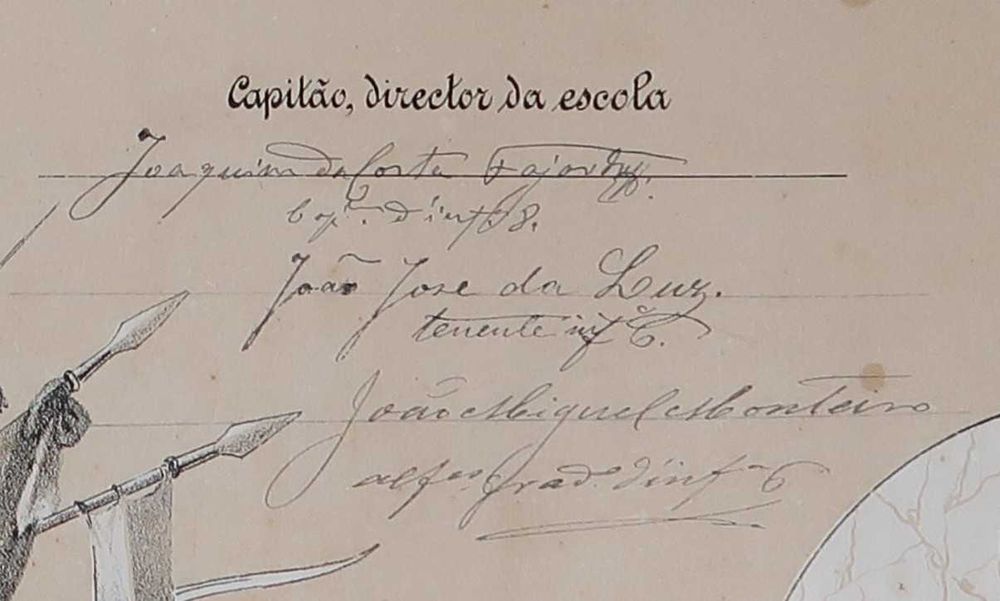 Capitão, director da escola
Joaquim da Costa Fajardo
Cap.m d'inf. 8.
João José da Luz.
tenente inf.ª 6.
João Miguel Monteiro
alf.es grad.º d'inf.ª 6